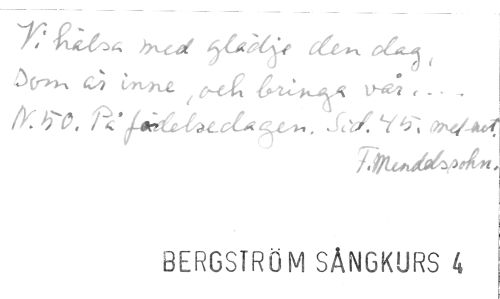 Vi hälsa med glädje den dag,
som är inne, och bringa vår....
N.50. På födelsedagen. Sid. 45. mel-not.
F. Mendelssohn.
BERGSTRÖM SÅNGKURS 4